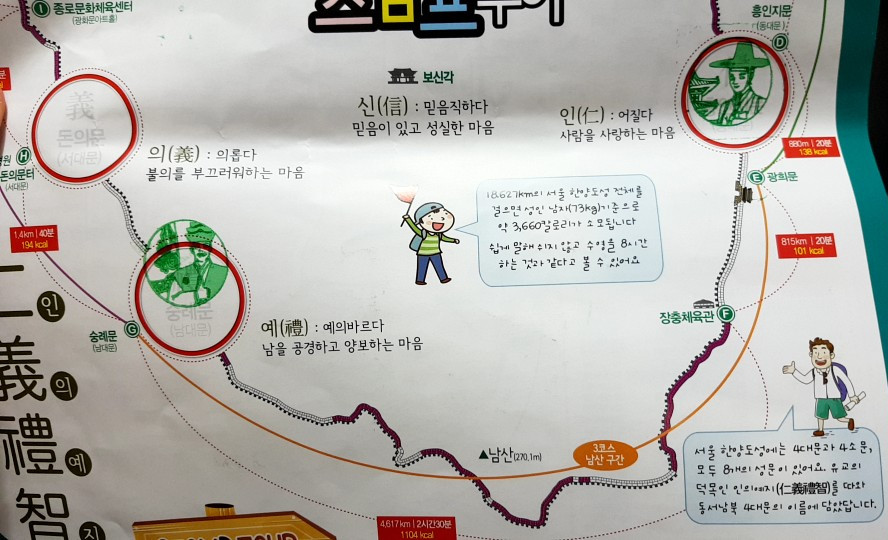 I 종로문화체육센터
(광화문아트홀)
스탬프투어
흥인지문
(동대문)
D
보신각
신(信) : 믿음직하다
믿음이 있고 성실한 마음
인(仁) : 어질다
사람을 사랑하는 마음
義
돈의문
(서대문)
의(義) : 의롭다
불의를 부끄러워하는 마음
H
돈의문터
(서대문)
880m | 20분
138 kcal
E 광희문
18.627km의 서울 한양도성 전체를
걸으면 성인 남자(73kg)기준으로
약 3,660칼로리가 소모됩니다
쉽게 말해 쉬지 않고 수영을 8시간
하는 것과 같다고 볼 수 있어요
1.4km | 40분
194 kcal
815m | 20분
101 kcal
숭례문
(남대문)
장충체육관 F
숭례문 G
(남대문)
예(禮) : 예의바르다
남을 공경하고 양보하는 마음
仁 인
義 의
禮 예
智 지
▲남산(270.1m)
3코스
남산 구간
서울 한양도성에는 4대문과 4소문,
모두 8개의 성문이 있어요. 유교의
덕목인 인의예지(仁義禮智)를 따와
동서남북 4대문의 이름에 담았답니다.
4.617km | 2시간30분
1104 kcal